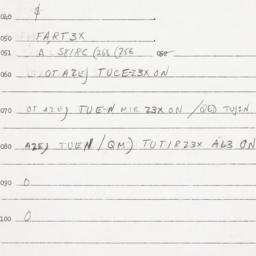 040 $
050 FART3X
051 A SK/RC (268 (756 052
060 OT AZEJ TUCE-Z3X ON
070 OT AZEJ TUE-N MIR Z3X ON / QED TUJZN
080 AZEJ TUEN / QM) TUTIR Z3X AL3 ON
090 0
100 0